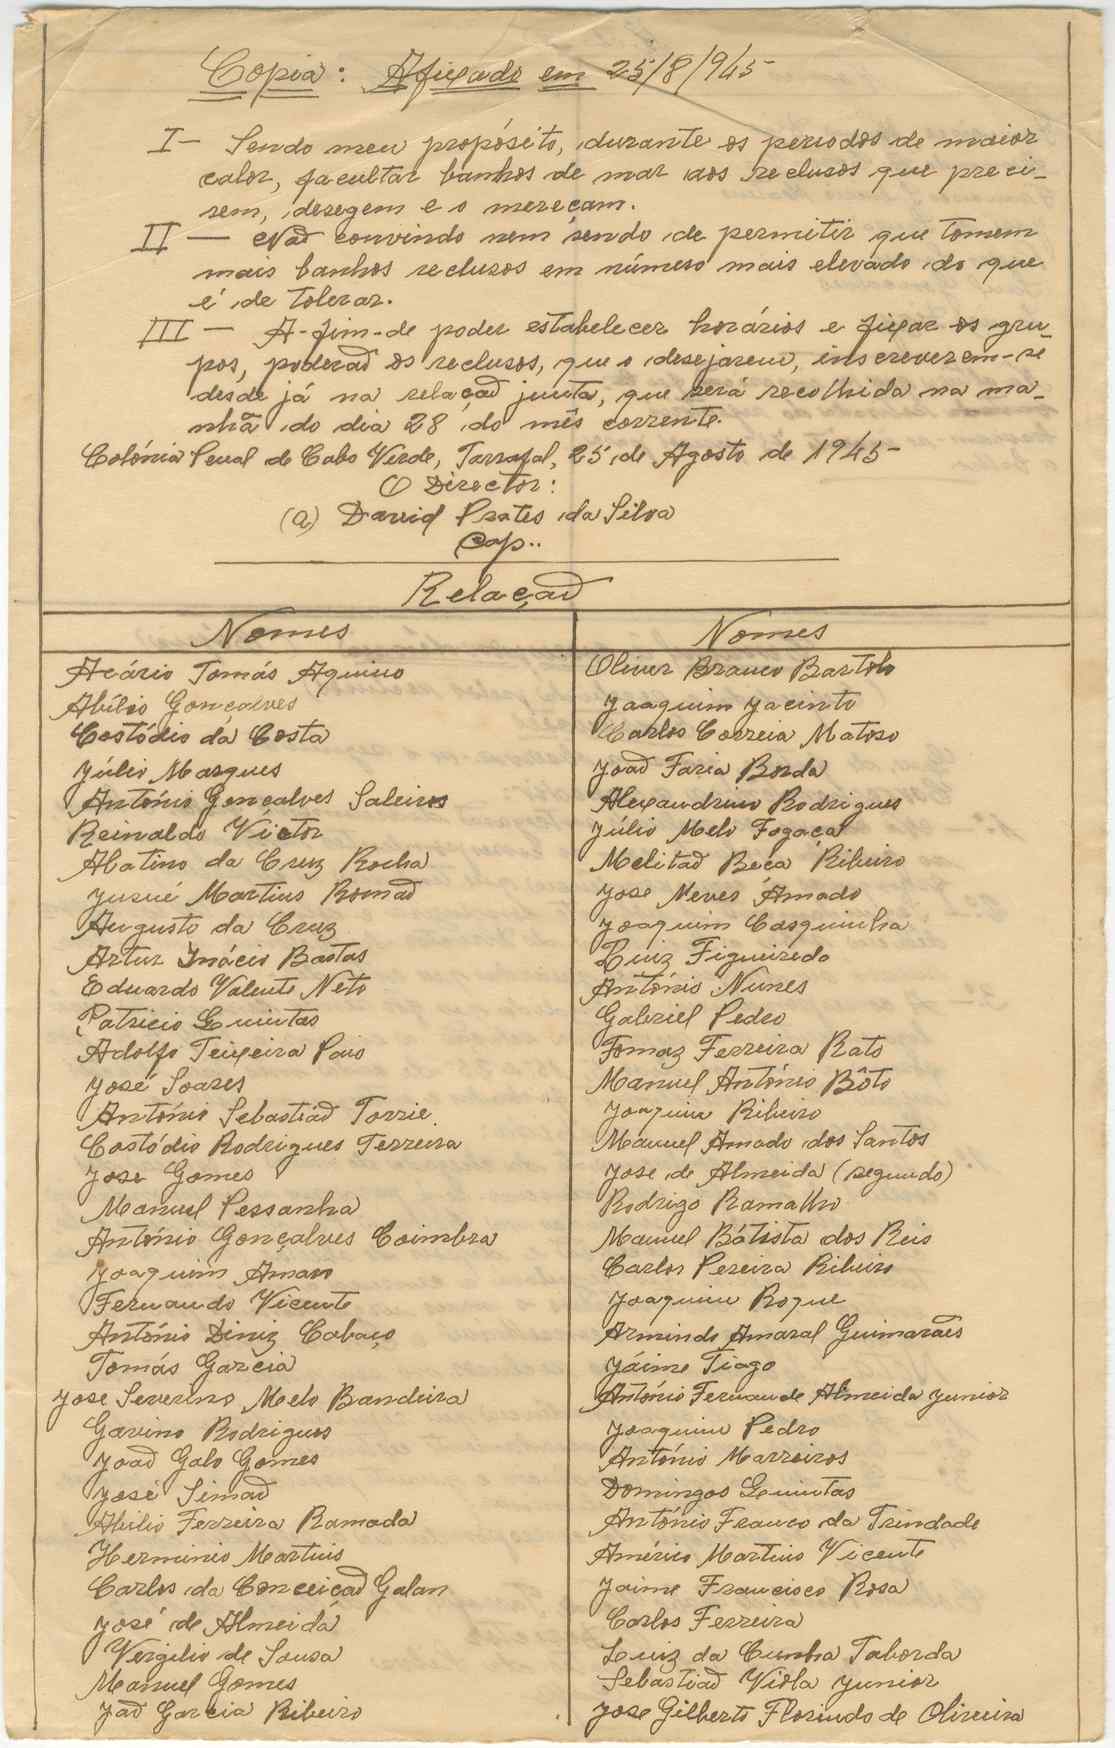 Copia: Afixado em 25/8/945
I - Sendo meu propósito, durante os periodos de maior
calor, facultar banhos de mar aos reclusos que preci-
sem, desegem e o mereçam.
II - Não convindo nem sendo de permitir que tomem
mais banhos reclusos em número mais elevado do que
é de tolerar.
III - A-fim-de poder estabelecer horários e fixar os gru-
pos, poderão os reclusos, que o desejarem, inscreverem-se
desde já na relação junta, que será recolhida na ma-
nhã do dia 28 do mês corrente.
Colónia Penal de Cabo Verde, Tarrafal, 25 de Agosto de 1945-
O Director:
(a) David Prates da Silva
Cap..
Relação
Nomes
Acário Tomás Aquino
Abílio Gonçalves
Costódio da Costa
Júlio Marques
António Gonçalves Saleiros
Reinaldo Victor
Abatino da Cruz Rocha
Jusué Martins Romão
Augusto da Cruz
Artur Inácio Bastas
Eduardo Valente Neto
Patricio Quintas
Adolfo Teixeira Pais
José Soares
António Sebastião Torrie
Costódio Rodrigues Ferreira
Jose Gomes
Manuel Pessanha
António Gonçalves Coimbra
Joaquim Amaro
Fernando Vicente
António Diniz Cabaço
Tomás Garcia
Jose Severino Melo Bandeira
Gavino Rodrigues
João Galo Gomes
José Simão
Abilio Ferreira Ramada
Herminio Martins
Carlos da Conceição Galan
José de Almeida
Vergilio de Sousa
Manuel Gomes
Jão Garcia Ribeiro
Nomes
Oliver Branco Bartolo
Joaquim Jacinto
Carlos Correia Matoso
João Faria Borda
Alexandrino Rodrigues
Júlio Melo Fogaça
Melitão Beca Ribeiro
Jose Neves Amado
Joaquim Casquinha
Luiz Figueiredo
António Nunes
Gabriel Pedro
Tomaz Ferreira Rato
Manuel António Bôto
Joaquim Ribeiro
Manuel Amado dos Santos
Jose de Almeida (segundo)
Rodrigo Ramalho
Manuel Bátista dos Reis
Carlos Pereira Ribeiro
Joaquim Roque
Armindo Amaral Guimarães
Jáime Tiago
António Fernan de Almeida Junior
Joaquim Pedro
António Marreiros
Domingos Quintas
António Franco da Trindade
Américo Martins Vicente
Jaime Francisco Rosa
Carlos Ferreira
Luiz da Cunha Taborda
Sebastião Viola Junior
Jose Gilberto Florindo de Oliveira